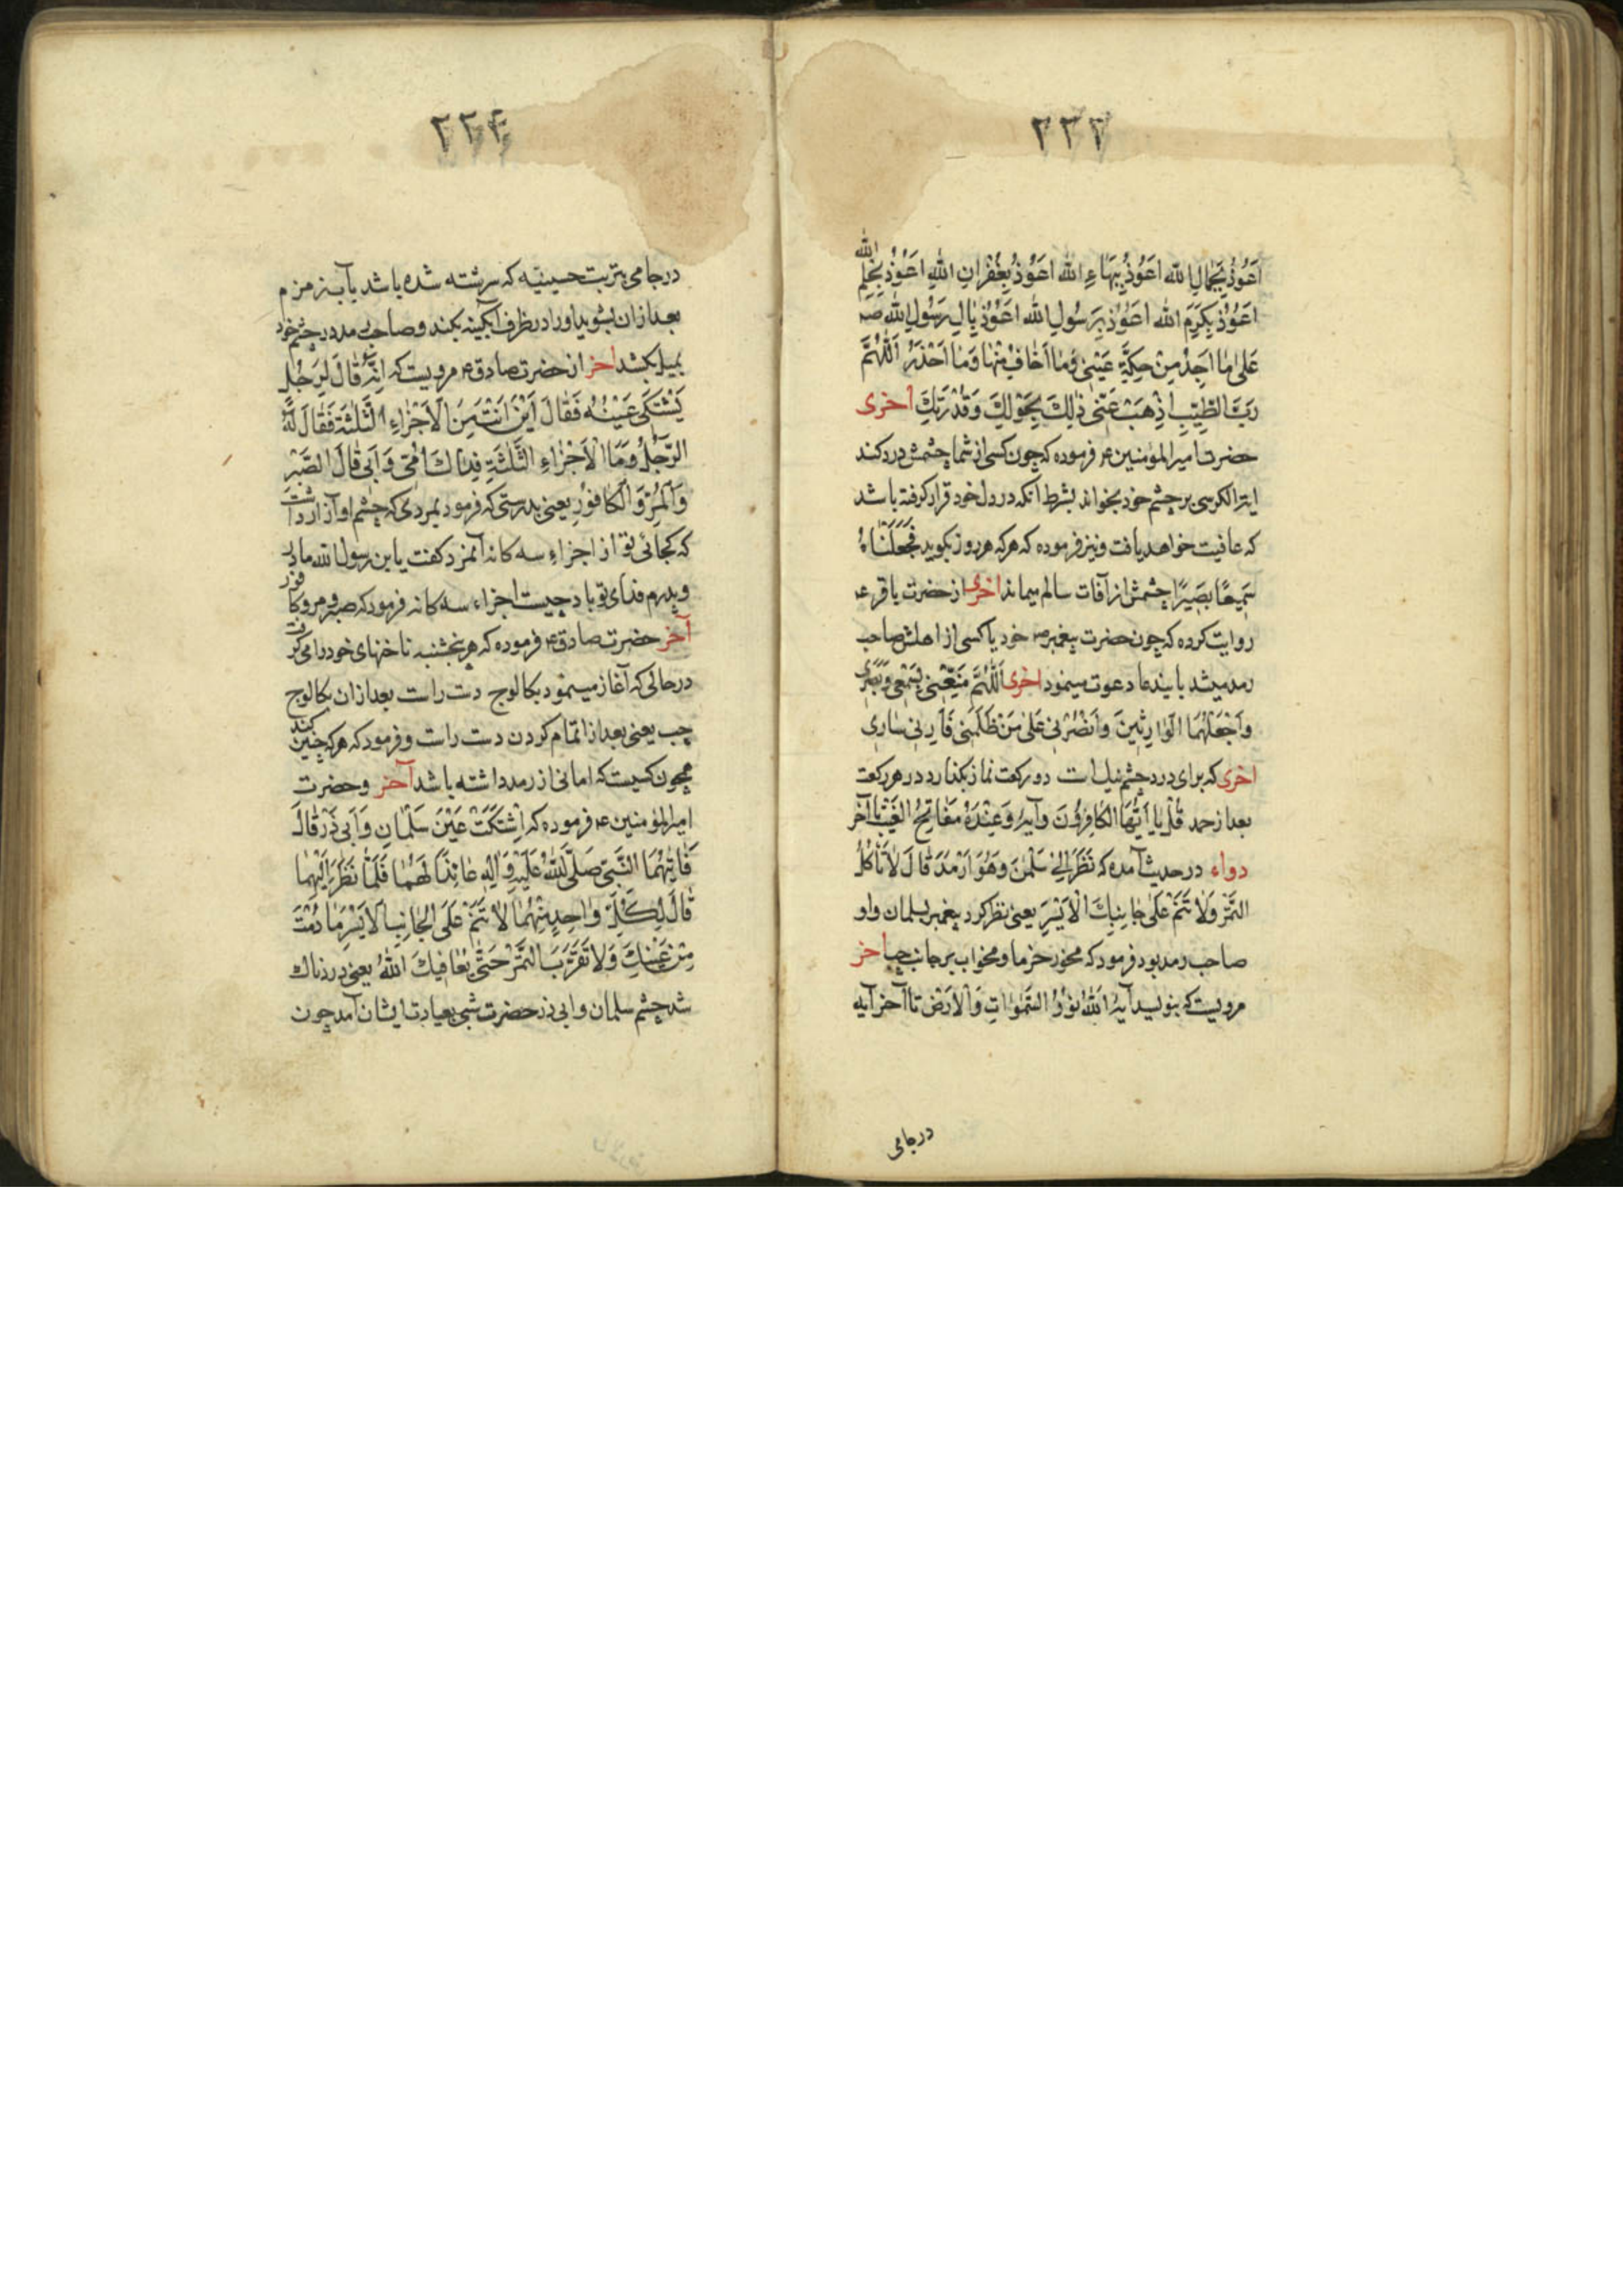 ٢٣٣
اَعُوذُ بِجَمالِ الله اَعُوذُ بِبَهاءِ الله اَعُوذُ بِغُفْرانِ اللهِ اَعُوذُ بِحِلْمِ الله
اَعُوذُ بِكَرَمِ الله اَعُوذُ بِرَسُولِ الله اَعُوذُ بِآلِ رَسُولِ الله صَ
عَلىٰ ما اَجِدُ مِنْ حِكَّةِ عَيْنى وَما اَخافُ مِنْها وَما اَحْذَرُ اَللّٰهُمَّ
رَبَّ الطَّيِّبِينَ اَذْهِبْ عَنّى ذٰلِكَ بِحَوْلِكَ وَقُدْرَتِكَ اخرى
حضرت امیر المؤمنین ع فرموده که چون کسی از شما چشمش درد کند
ایة الکرسی بر چشم خود بخواند بشرط انکه در دل خود قرار کرفته باشد
که عافیت خواهد یافت و نیز فرموده که هر که هر روز بکوید فَجَعَلْناهُ
سَمِيعًا بَصِيرًا چشمش از آفات سالم میماند اخرى از حضرت باقر ع
روایت کرده که چون حضرت پیغمبر ص خود یا کسی از اهلش صاحب
رمد میشد بایندعا دعوت مینمود اخرى اَللّٰهُمَّ مَتِّعْنى بِسَمْعى وَبَصَرى
وَاجْعَلْهُمَا الْوارِثَيْنَ وَانْصُرْنى عَلىٰ مَنْ ظَلَمَنى وَاَرِنى ثارى
اخرى که برای درد چشم نیک است دو رکعت نماز بکذارد در هر رکعت
بعد از حمد قُلْ يا اَيُّهَا الْكافِرُونَ و آیهٔ وَعِنْدَهُ مَفاتِحُ الْغَيْبِ تا آخر
دواء در حدیث آمده که نَظَرَ اِلىٰ سَلْمٰنَ وَهُوَ اَرْمَدُ قالَ لا تَأْكُلِ
التَّمْرَ وَلا تَنَمْ عَلىٰ جانِبِكَ الْاَيْسَرِ یعنی نظر کرد پیغمبر بسلمان و او
صاحب رمد بود فرمود که مخور خرما و مخواب بر جانب چپ آخر
مرویست که بنویسد آیهٔ اَللهُ نُورُ السَّمٰوٰاتِ وَالْاَرْضِ تا آخر آیه
در جامی
٢٣٤
در جامی بتربت حسینیه که سرشته شده باشد بآب زمزم
بعد از ان بشوید او را در ظرف آبکینه بکند و صاحب رمد در چشم خود
بمیل بکشد آخر از حضرت صادق ع مرویست که اِنَّهُ قالَ لِرَجُلٍ
يَشْتَكى عَيْنَهُ فَقالَ اَيْنَ اَنْتَ مِنَ الْاَجْزاءِ الثَّلٰثَةِ فَقالَ لَهُ
الرَّجُلُ وَمَا الْاَجْزاءُ الثَّلٰثَةِ فِداكَ اُمّى وَاَبى قالَ الصَّبْرُ
وَالْمُرُّ وَالْكافُورُ یعنی بدرستی که فرمود بمردی که چشم او آزار داشت
که کجائی تو از اجزاءِ سه کانه آنمرد کفت یا ابن رسول الله مادر
و پدرم فدای تو باد چیست اجزاء سه کانه فرمود که صبر و مر و کافور
آخر حضرت صادق ع فرموده که هر پنجشنبه ناخنهای خود را می کرفت
در حالی که آغاز مینمود بکالوج دست راست بعد از ان بکالوج
چپ یعنی بعد از اتمام کردن دست راست و فرمود که هر که چنین کند
همچون کسیست که امانی از رمد داشته باشد آخر و حضرت
امیر المؤمنین ع فرموده که اِشْتَكَتْ عَيْنُ سَلْمانَ وَاَبى ذَرٍّ قالَ
فَاَتاهُمَا النَّبِىُّ صَلَّى اللهُ عَلَيْهِ وَاٰلِهِ عائِدًا لَهُما فَلَمّا نَظَرَ اِلَيْهِما
قالَ لِكُلِّ واحِدٍ مِنْهُما لا تَنَمْ عَلَى الْجانِبِ الْاَيْسَرِ ما دُمْتَ
مِنْ عَيْنِكَ وَلا تَقْرَبَ التَّمْرَ حَتّىٰ يُعافِيَكَ اللهُ یعنی دردناک
شد چشم سلمان و ابی ذر حضرت شبی بعیادت ایشان آمد چون